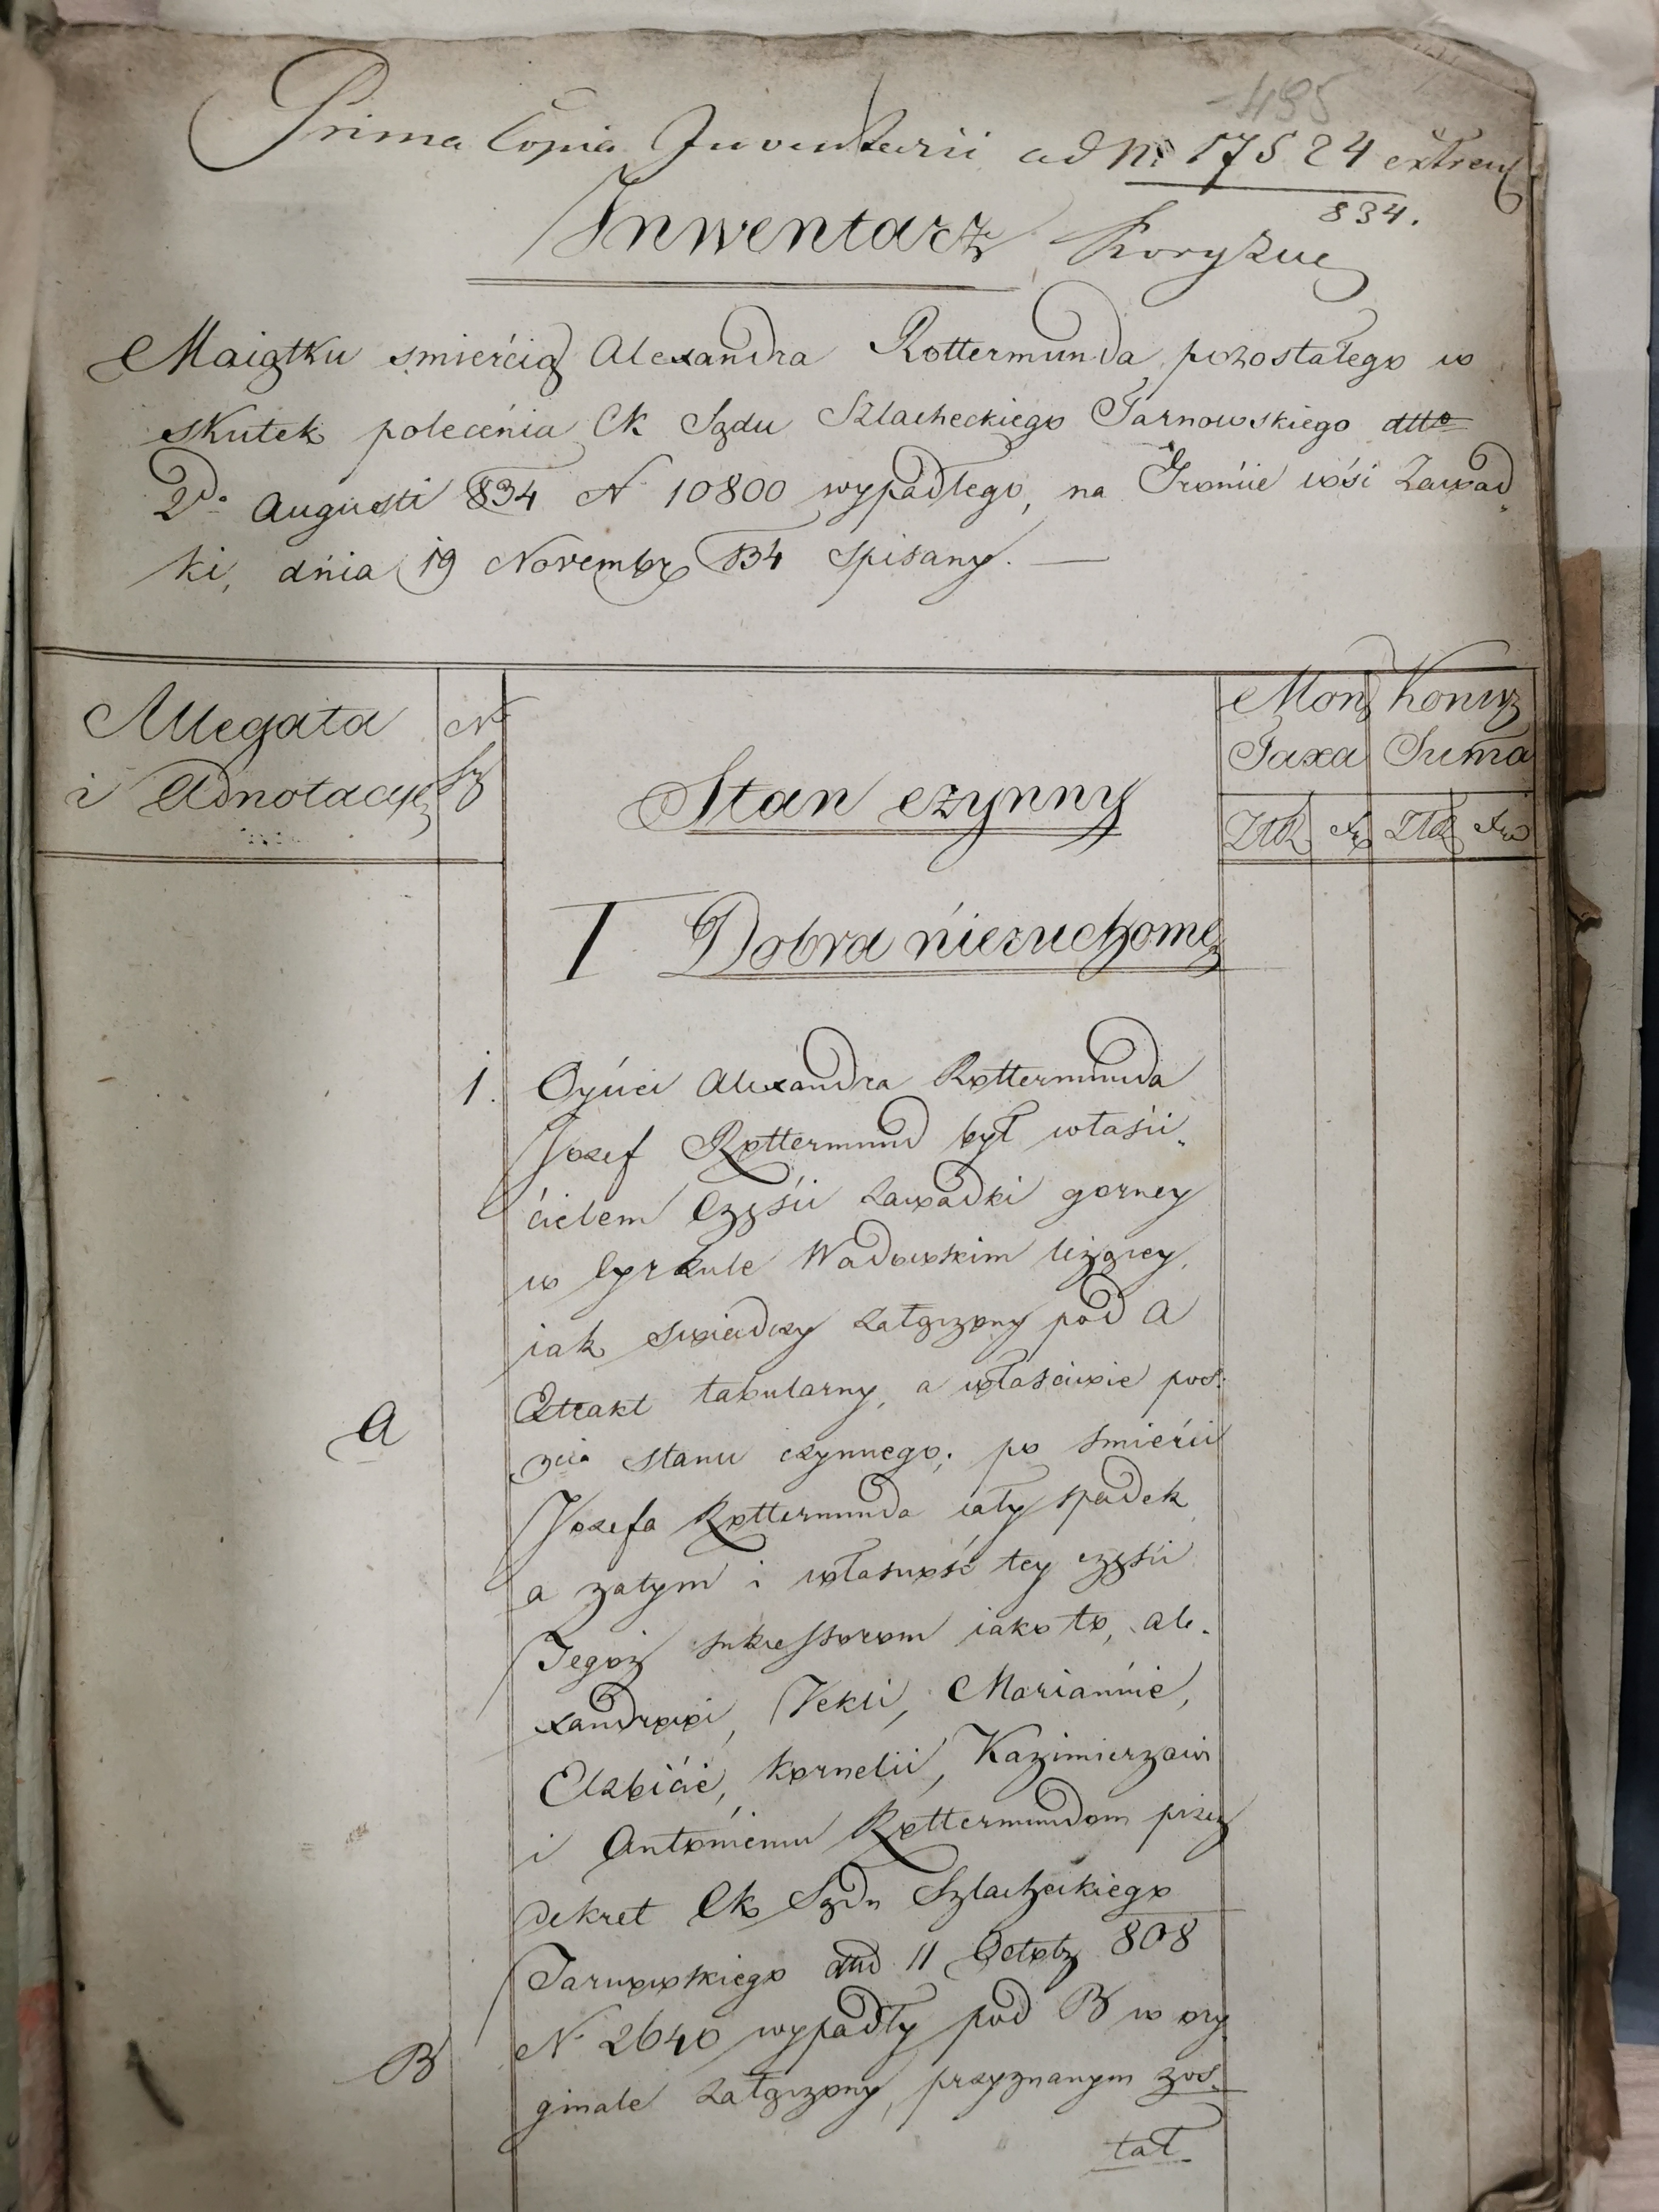 495
Prima Copia Inventarii ad Nr 17524 extrenj
834.
Inwentarz
Maiątku smierćią Alexandra Rottermunda pozostałego w
skutek polecénia CK Sądu Szlacheckiego Tarnowskiego dtto
2do Augusti 834 N 10800 wypadłego, na Gronćie wśi Zawad„
ki, dńia 19 Novembr 834 spisany. —
Allegata
i Adnotacye
N
Stan czynny
Mon Konw
Taxa Suma
ZłR Xr ZłR Xr
I Dobra nieruchome
1. Oyćiec Alexandra Rottermunda
Jozef Rottermund był właśći„
ćielem Częśći Zawadki gorney
w Cyrkule Wadowskim leżącey,
iak swiadczy załączony pod A
A
Extrakt tabularny, a właściwie poz:
3cia stanu czynnego; po smierći
Jozefa Rottermunda cały spadek
a zatym i własność tey częśći
Tegoż sukcessorom iako to, Ale„
xandrowi, Tekli, Mariannie,
Elzbićie, Kornelii, Kazimierzowi
i Antoniemu Rottermundom przez
dekret CK Sądu Szlacheckiego
Tarnowskiego dtto 11 Octobr 808
N. 2640 wypadły pod B w ory
B
ginale załączony, przyznanym zos„
tał